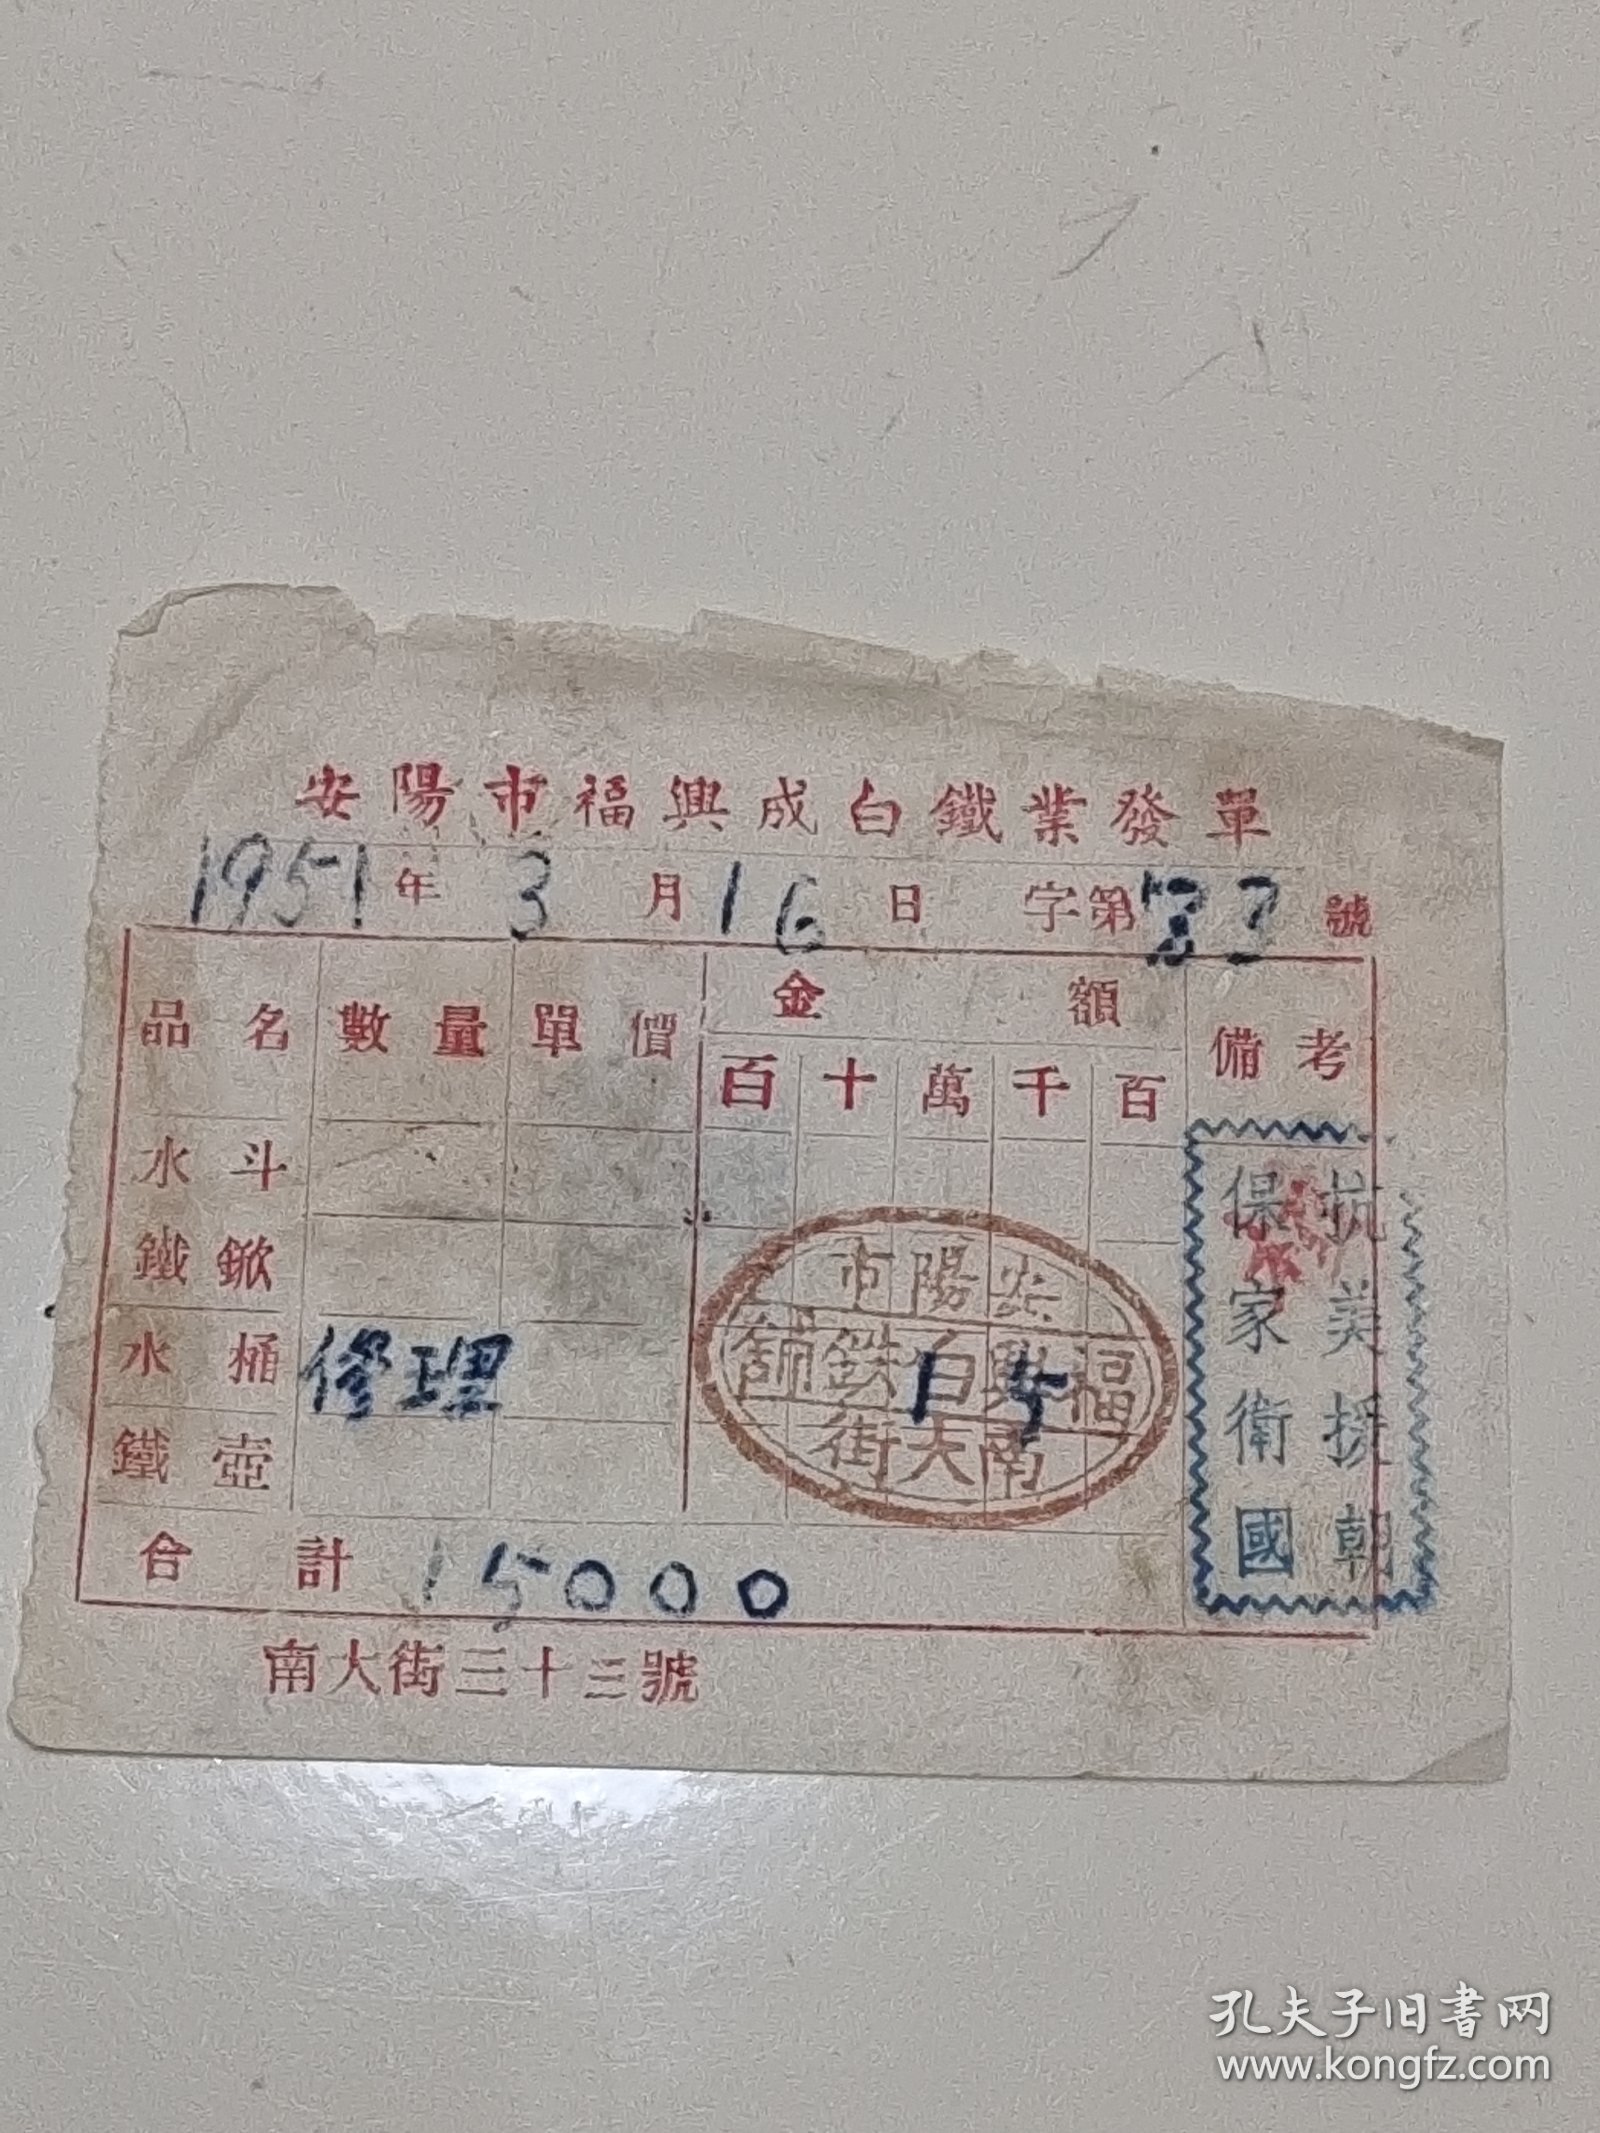 安陽市福興成白鐵業發單
1951年3月16日 字第 號
品名 數量 單價 金額 備考
百 十 萬 千 百
水斗
鐵鍁
水桶 修理 1 5
鐵壺
合計 15000
南大街三十三號
安陽市
福興白鉄舖
南大街
抗美援朝
保家衛國
孔夫子旧书网
www.kongfz.com